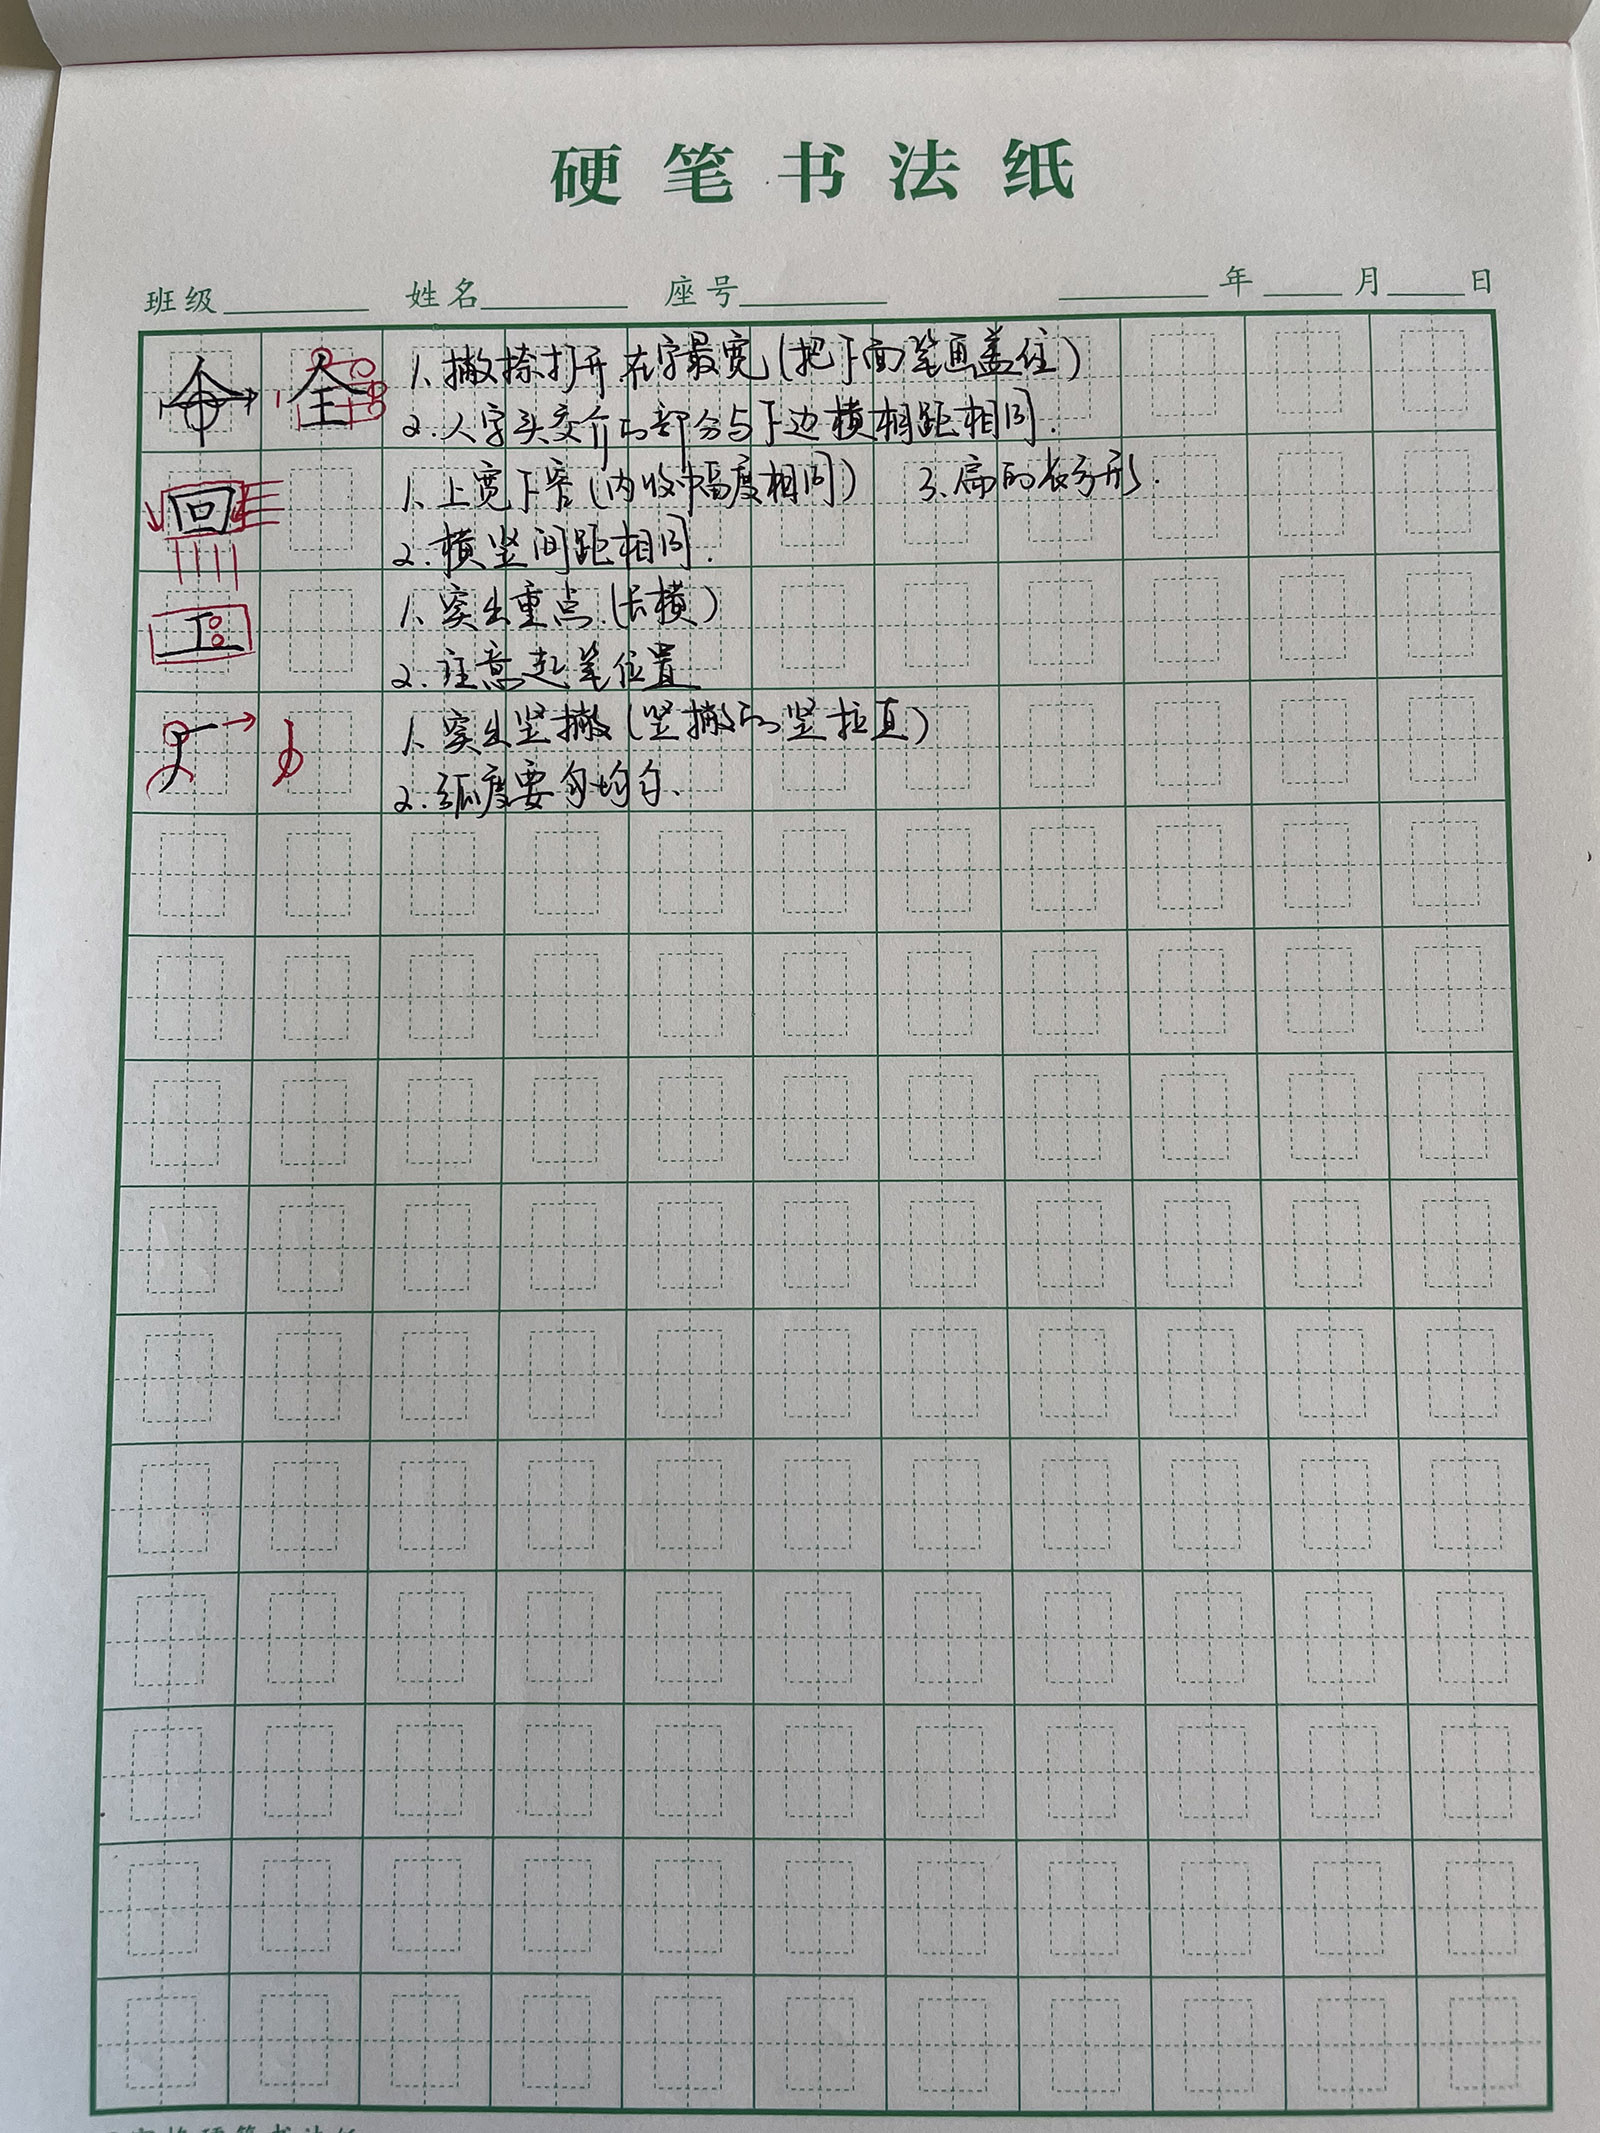 硬笔书法纸
班级 姓名 座号 年 月 日
全 1. 撇捺打开在字最宽(把下面笔画盖住)
2. 人字头交介的部分与下边横相距相同.
回 1. 上宽下窄(内收幅度相同) 3. 扁的长方形.
2. 横竖间距相同.
工 1. 突出重点.(长横)
2. 注意起笔位置
1. 突出竖撇(竖撇的竖拉直)
2. 弧度要匀均匀.